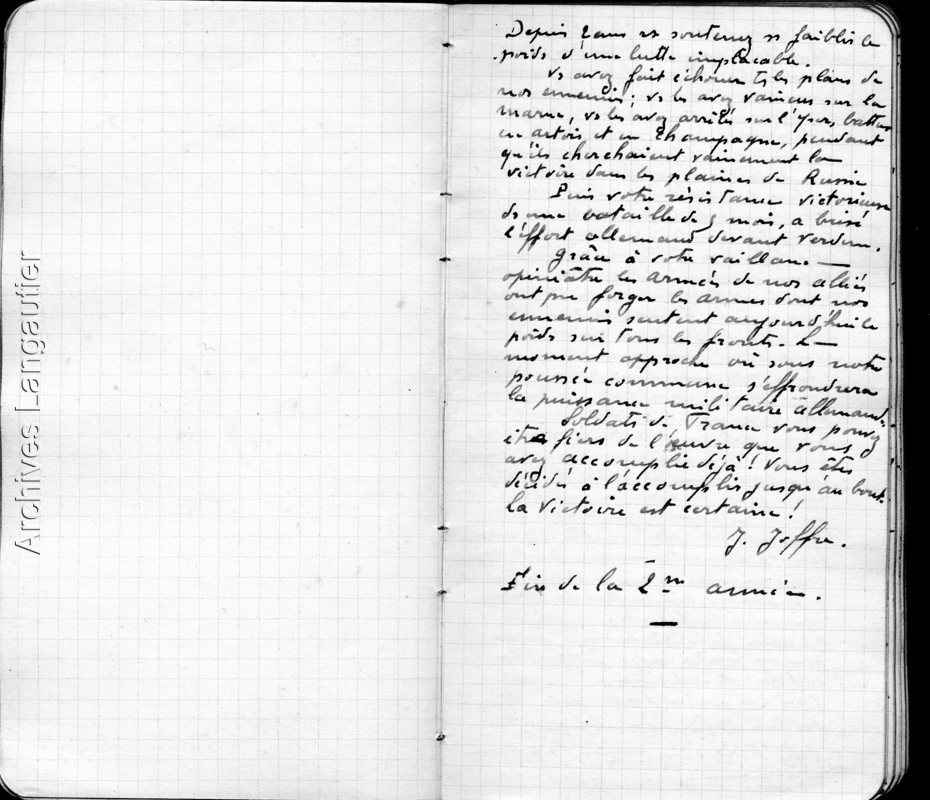 Archives Langautier
Depuis 2 ans vs soutenez ss faiblir le
poids d'une lutte implacable.
Vs avez fait échouer ts les plans de
nos ennemis ; vs les avez vaincus sur la
marne, vs les avez arrêtés sur l'Yser, battus
en artois et en Champagne, pendant
qu'ils cherchaient vainement la
victoire dans les plaines de Russie
Puis votre résistance victorieuse
ds une bataille de 5 mois, a brisé
l'effort allemand devant Verdun.
Grâce à votre vaillance
opiniâtre les armées de nos alliés
ont pu forger les armes dont nos
ennemis sentent aujourd'hui le
poids sur tous les fronts. Le
moment approche où sous notre
poussée commune s'effrondrera
la puissance militaire allemande.
Soldats de France vous pouvez
être fiers de l'œuvre que vous
avez accomplie déjà ! Vous êtes
décidés à l'accomplir jusqu'au bout.
la Victoire est certaine !
J. Joffre.
Fin de la 2me année.